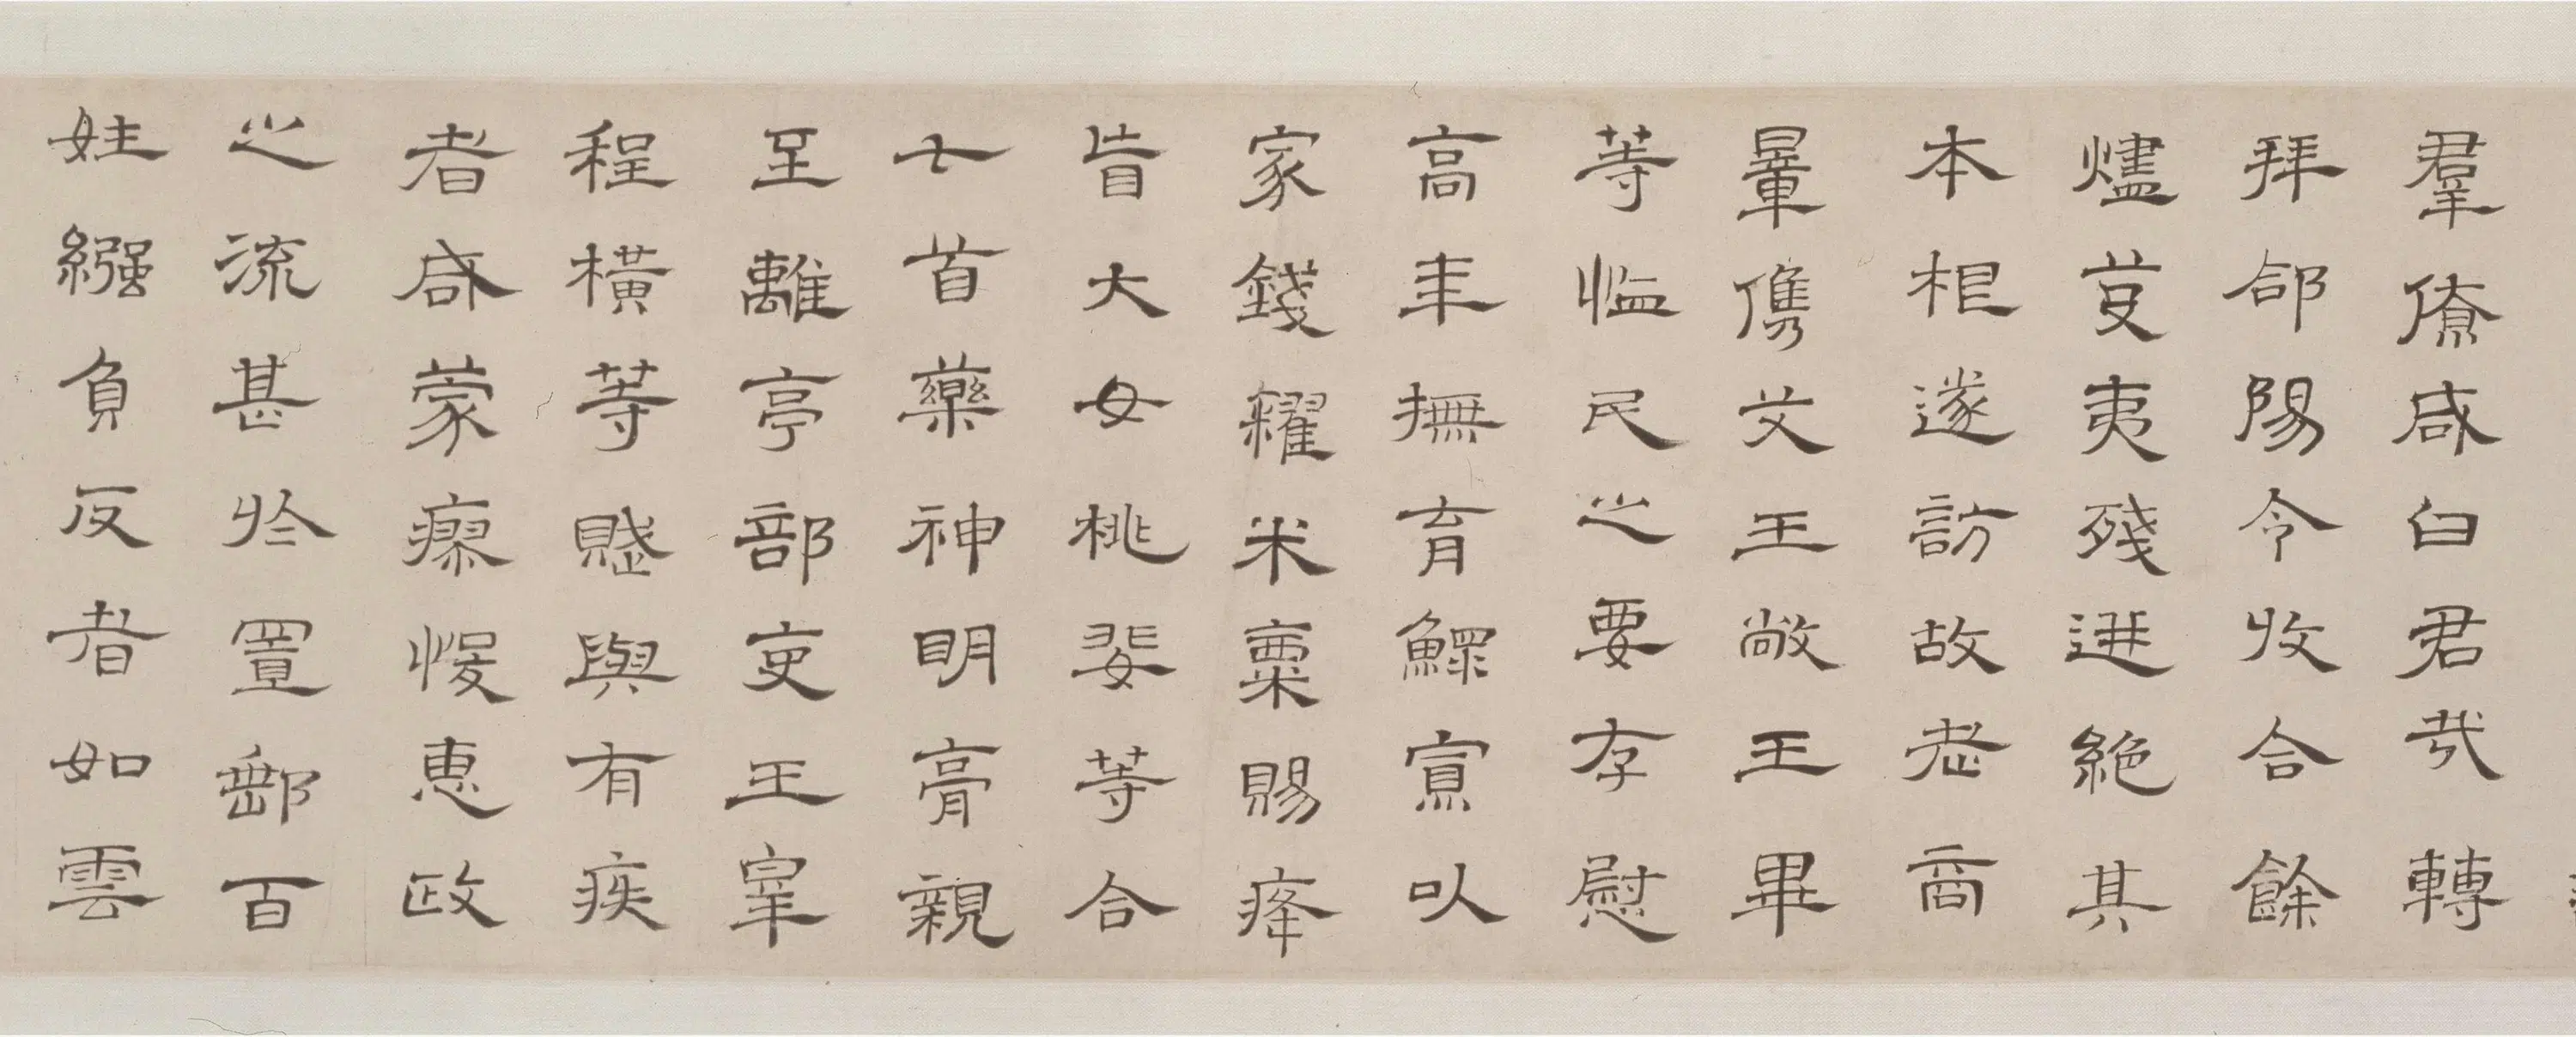 羣僚咸曰君哉轉
拜郃陽令收合餘
燼芟夷殘迸絕其
本根遂訪故老商
量儁艾王敞王畢
等恤民之要存慰
高年撫育鰥寡以
家錢糴米粟賜癃
盲大女桃婓等合
七首藥神明膏親
至離亭部吏王皋
程橫等賦與有疾
者咸蒙瘳悛惠政
之流甚於置郵百
姓繦負反者如雲